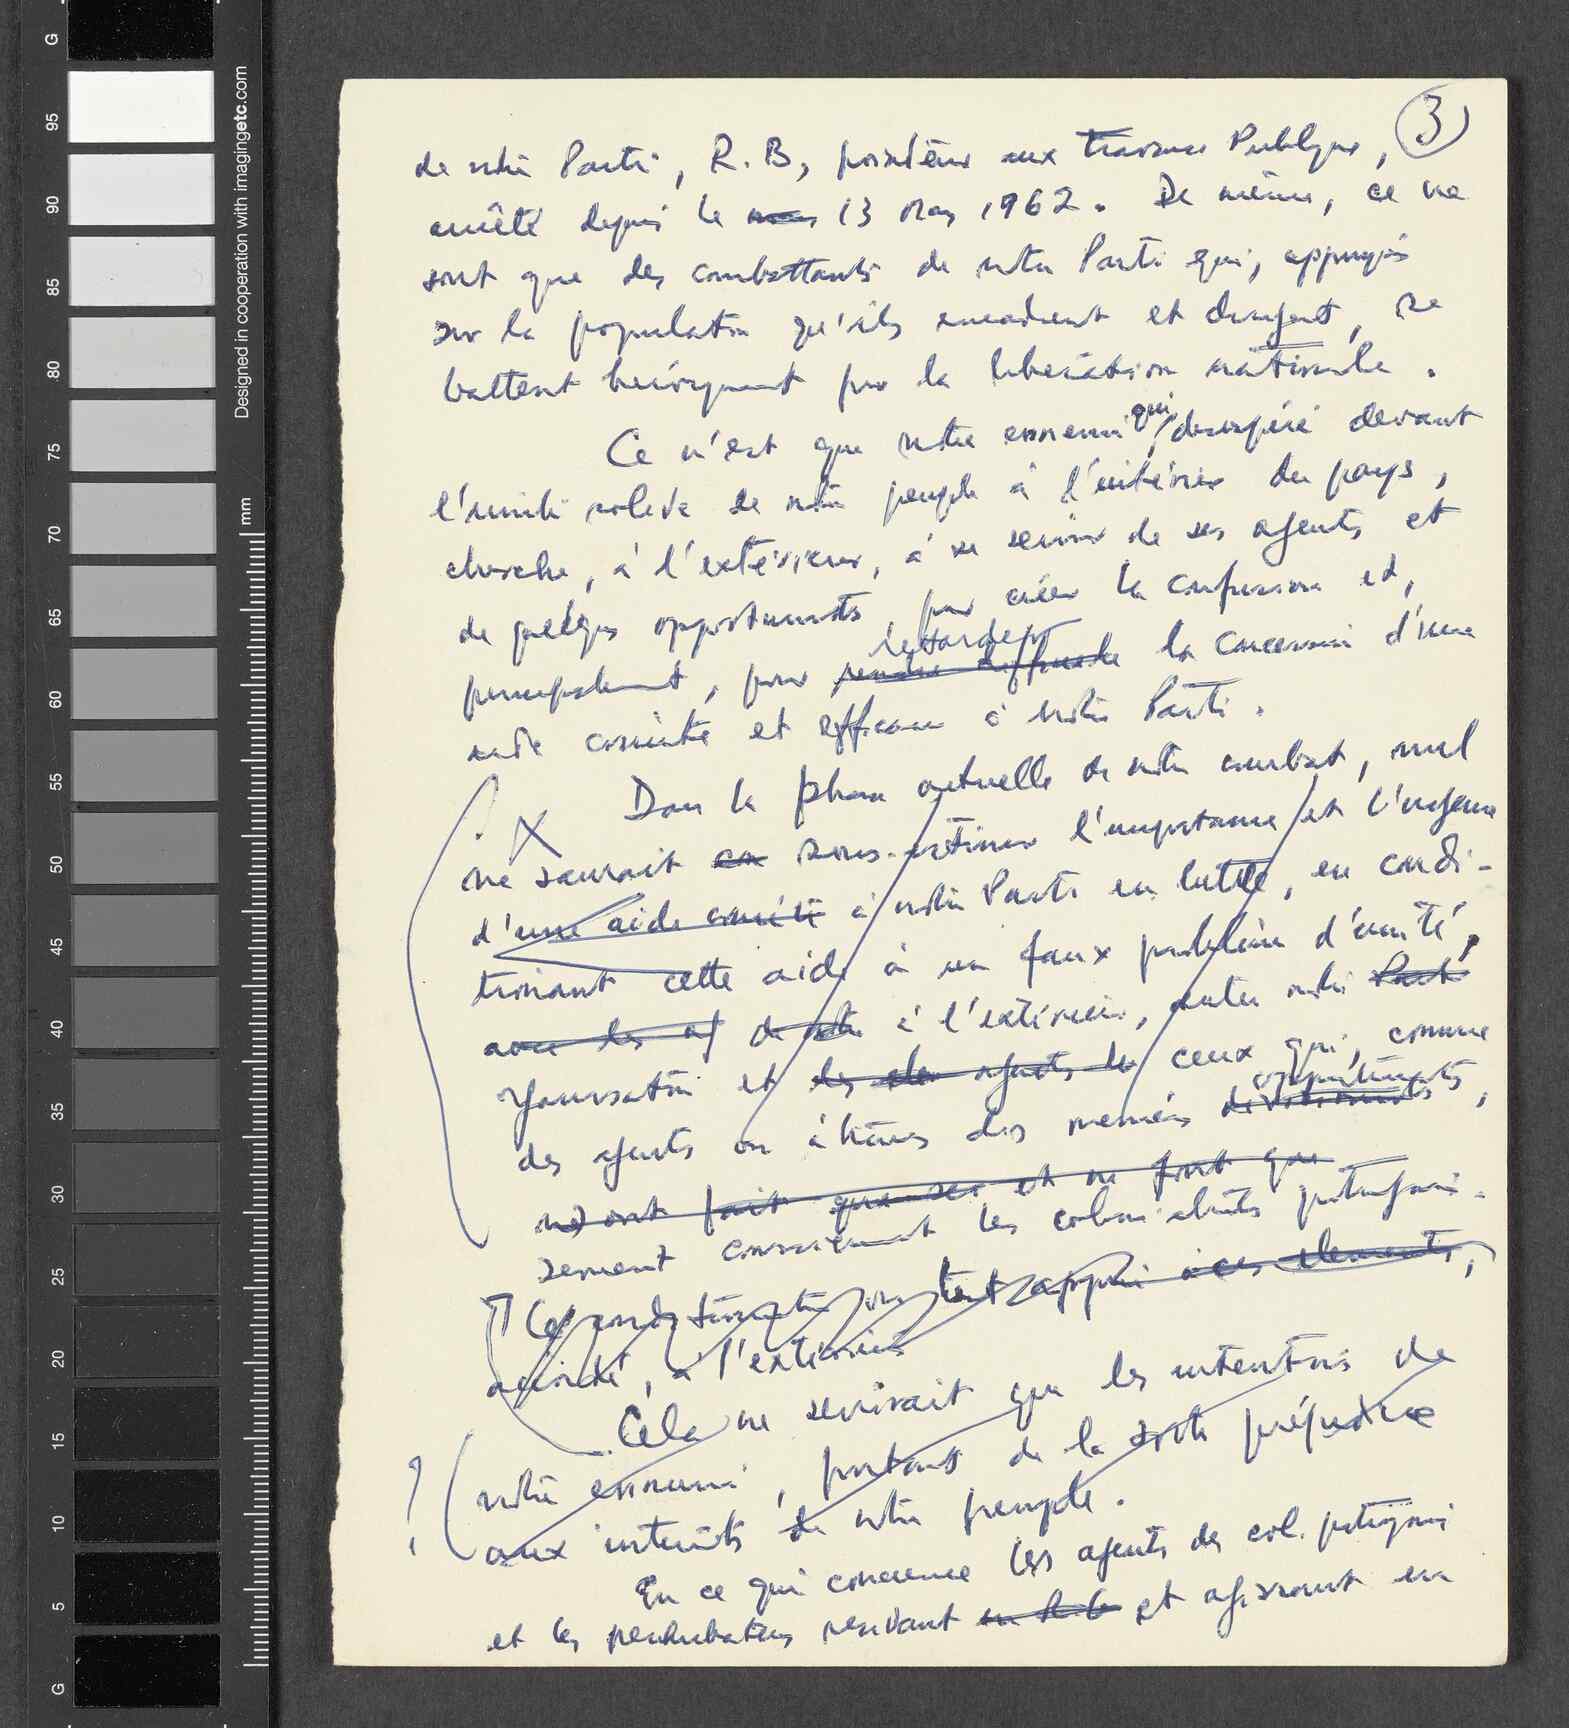 3
de notre Parti, R. B., pointeur aux travaux Publiques,
arrêté depuis le mars 13 Mars 1962. De même, ce ne
sont que des combattants de notre Parti qui, appuyés
sur la population qu'ils encadrent et dirigent, se
battent héroïquement pour la libération nationale.
Ce n'est que notre ennemi qui, désespéré devant
l'unité solide de notre peuple à l'intérieur du pays,
cherche, à l'extérieur, à se servir de ses agents et
de quelques opportunistes pour créer la confusion et,
retarder
principalement, pour rendre difficile la concession d'une
aide concrète et efficace à notre Parti.
Dans la phase actuelle de notre combat, nul
ne saurait sous-estimer l'importance et l'urgence
d'une aide concrète à notre Parti en lutte, en condi-
tionnant cette aide à un faux problème d'unité,
avec les de notre à l'extérieur, entre notre Parti
organisation et les agents de ceux qui, comme
opportunistes
des agents ou à travers des menées divisionnistes,
ne) ont fait que et ne font que
servent consciemment les colonialistes portugais.
Ces tout appui à ces elements,
accordé, à l'extérieur
Cela ne servirait que les intentions de
notre ennemi, portant de la sorte préjudice
aux intérêts de notre peuple.
En ce qui concerne les agents des col. portugais
et les perturbateurs residant et agissant en
Designed in cooperation with imagingetc.com
mm
G
95
90
85
80
75
70
65
60
55
50
45
40
35
30
25
20
15
10
5
G